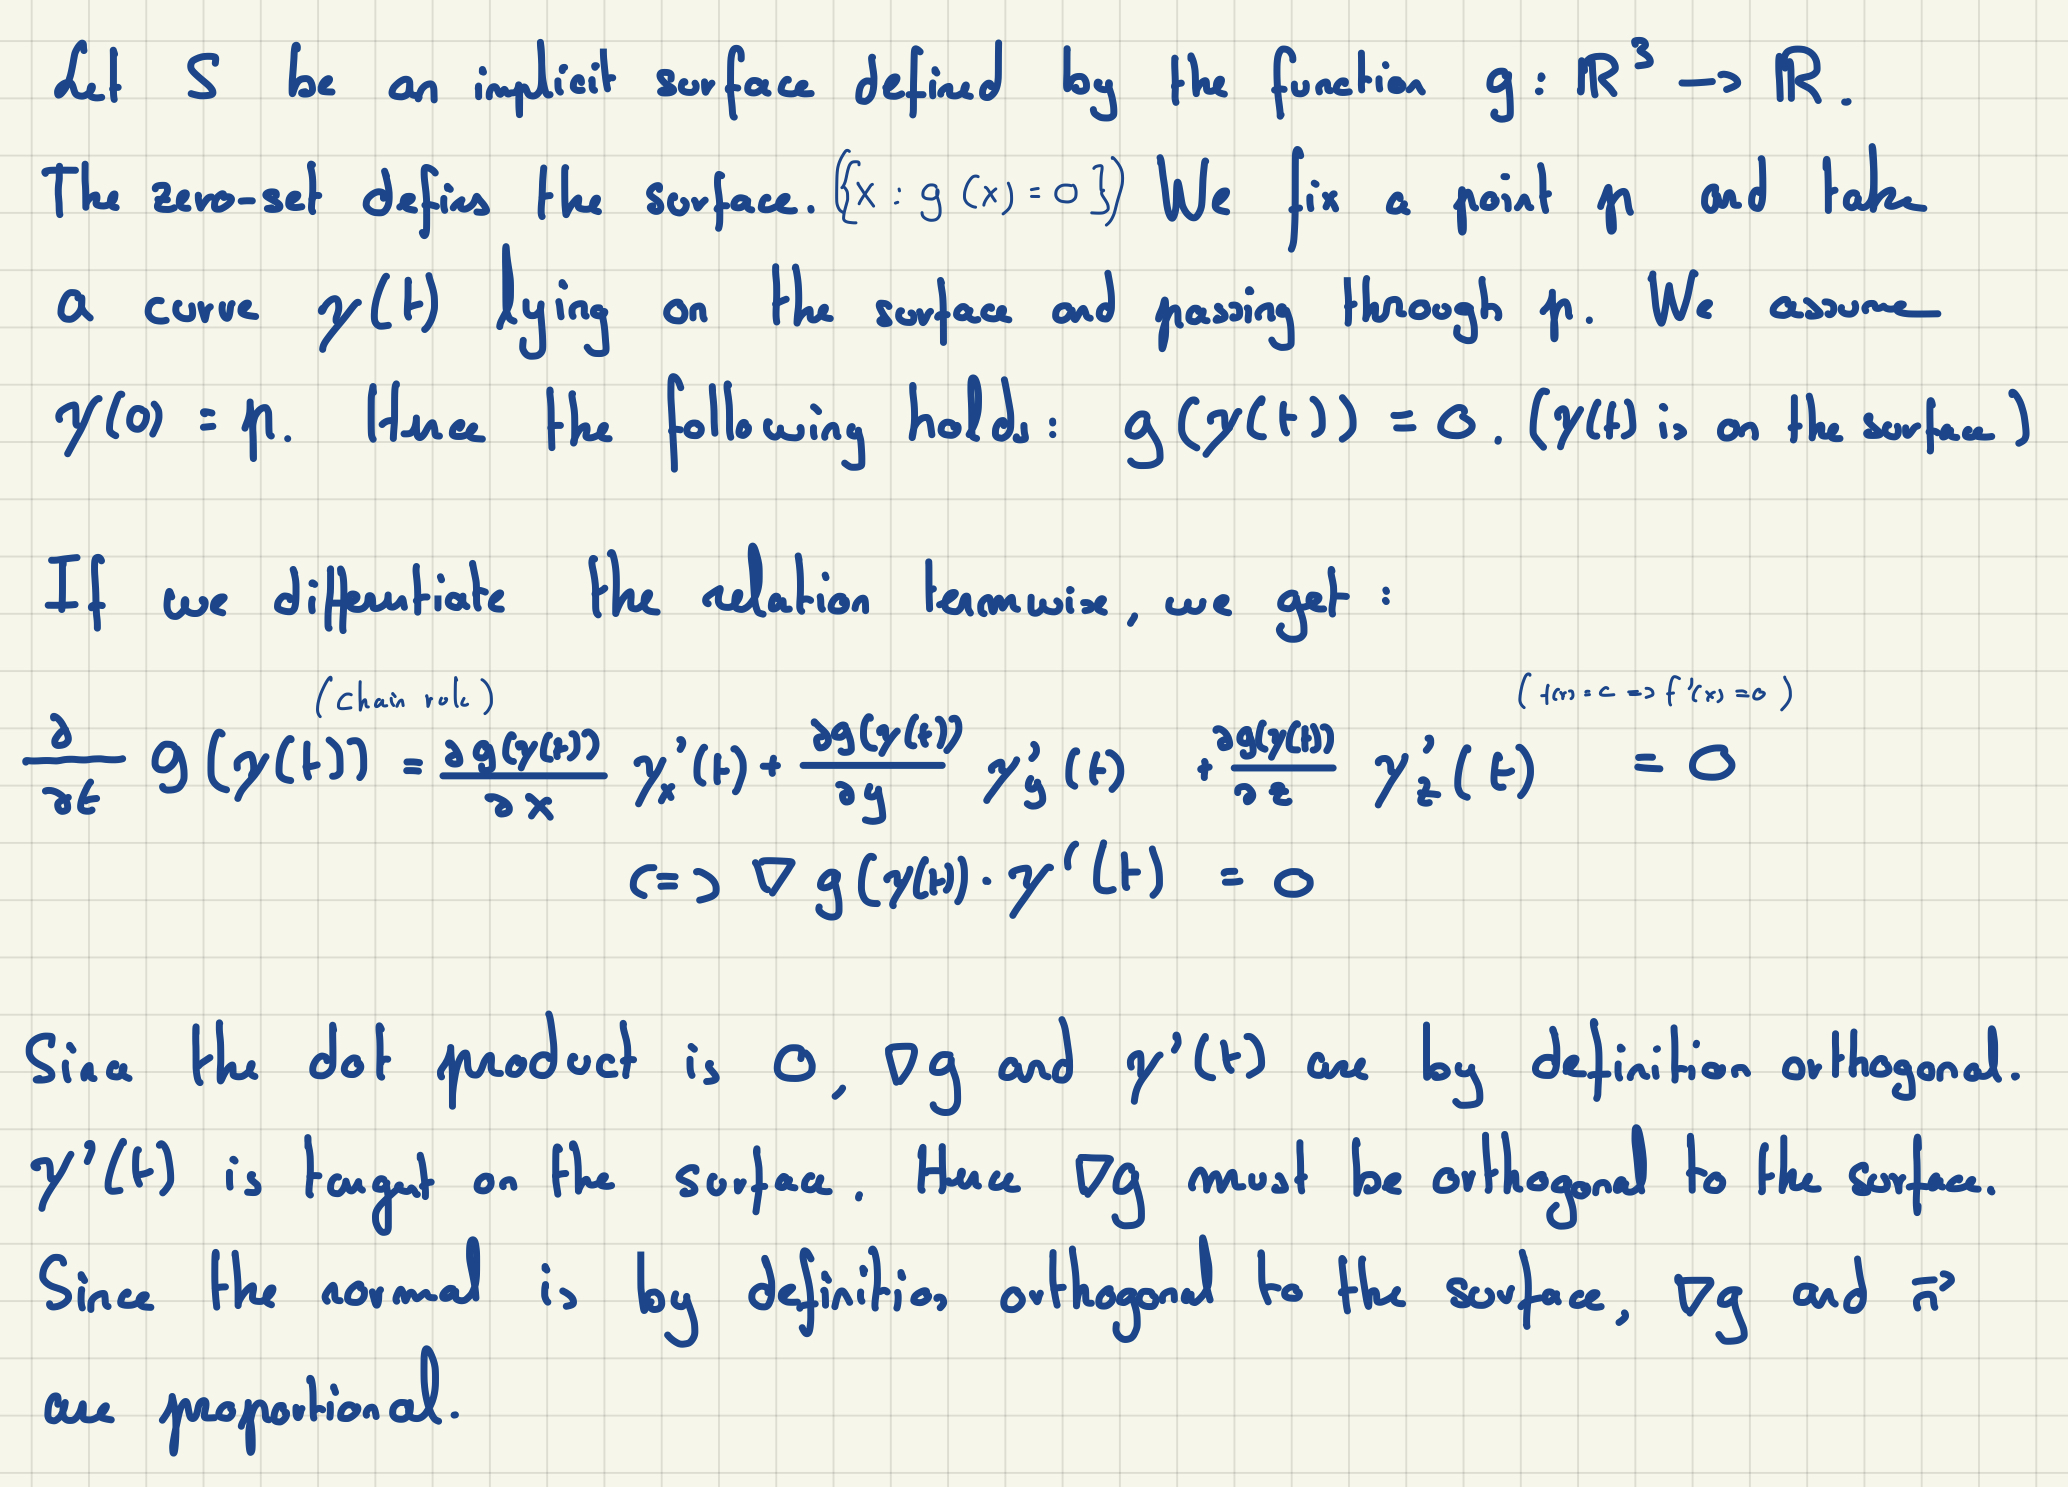 Let S be an implicit surface defined by the function g: ℝ³ → ℝ.
The zero-set defines the surface. ({x : g(x) = 0}) We fix a point p and take
a curve γ(t) lying on the surface and passing through p. We assume
γ(0) = p. Hence the following holds: g(γ(t)) = 0. (γ(t) is on the surface)
If we differentiate the relation termwise, we get:
(chain rule) (f(x) = c => f'(x) = 0)
∂/∂t g(γ(t)) = ∂g(γ(t))/∂x γₓ'(t) + ∂g(γ(t))/∂y γ_y'(t) + ∂g(γ(t))/∂z γ_z'(t) = 0
<=> ∇g(γ(t)) · γ'(t) = 0
Since the dot product is 0, ∇g and γ'(t) are by definition orthogonal.
γ'(t) is tangent on the surface. Hence ∇g must be orthogonal to the surface.
Since the normal is by definition orthogonal to the surface, ∇g and n⃗
are proportional.